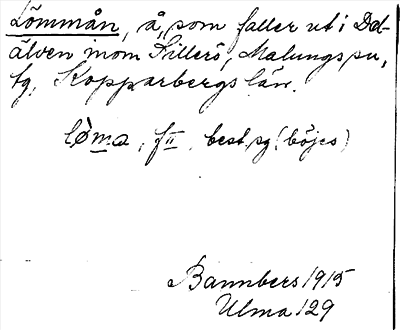 Lömmån, å, som faller ut i Dal-
älven inom Tillerö, Malungs su,
tg, Kopparbergs län.
lø̀ma, f II, best. sg. (böjes)
Bannbers 1915
Ulma 129